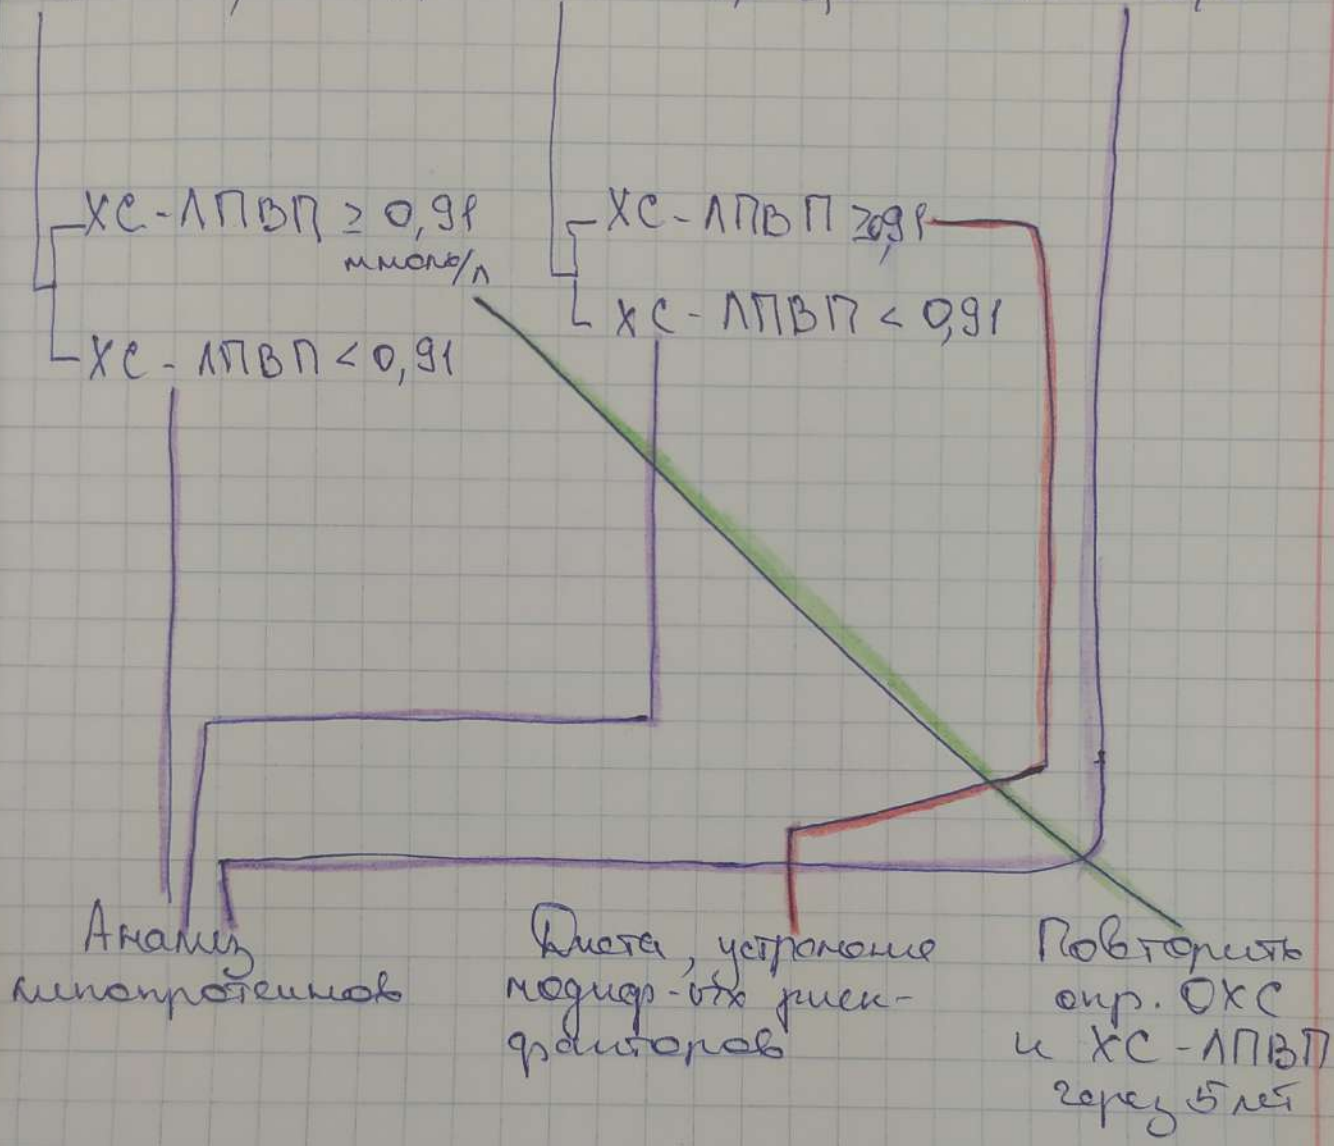 ХС-ЛПВП ≥ 0,91
ммоль/л
ХС-ЛПВП < 0,91
ХС-ЛПВП ≥0,91
ХС-ЛПВП < 0,91
Анализ
липопротеинов
Диета, устранение
модиф-ых риск-
факторов
Повторить
опр. ОХС
и ХС-ЛПВП
через 5 лет